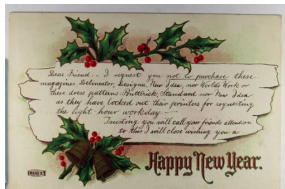 Dear Friend.. I request you not to purchase these
magazines Delineator, Designer, New Idea, nor Worlds Work or
these dress patterns. Buttrick, Standard nor New Idea
as they have locked out their printers for requesting
the eight hour workday.
Trusting you will call your friends attention
to this I will close wishing you a
Happy New Year.